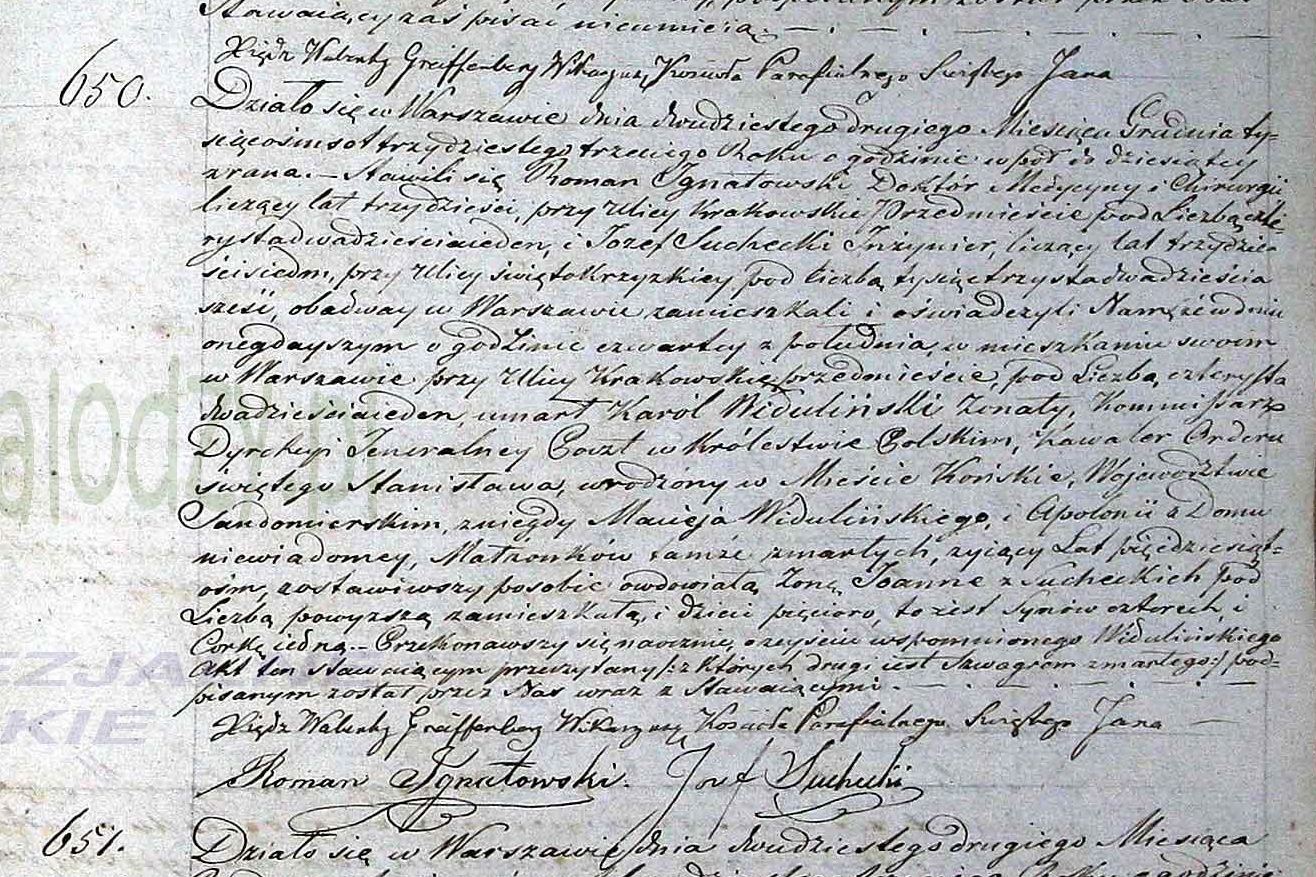 Stawaiący zaś pisać nieumieią. —
Xiądz Walenty Greiffenberg Wikaryusz Kościoła Parafialnego Swiętego Jana
650.
Działo się w Warszawie dnia dwudziestego drugiego Miesiąca Grudnia ty-
siącośmsottrzydziestego trzeciego Roku o godzinie w pół do dziesiątey
zrana. — Stawili się Roman Ignatowski Doktór Medycyny i Chirurgii
liczący lat trzydzieści, przy Ulicy Krakowskie Przedmieście pod Liczbą czte-
rystadwadzieściaieden, i Jozef Suchecki Inżynier, liczący lat trzydzie-
ścisiedm, przy Ulicy świętokrzyzkiey pod liczbą tysiąctrzystadwadzieścia
sześć, obadway w Warszawie zamieszkali i oświadczyli Nam, że w dniu
onegdayszym o godzinie czwartey z południa, w mieszkaniu swoim
w Warszawie przy Ulicy Krakowskie przedmieście, pod Liczbą czterysta
dwadzieściaieden, umarł Karól Widuliński Zonaty, Kommissarz
Dyrekcyi Jeneralney Poczt w Królestwie Polskim, Kawaler Orderu
świętego Stanisława, urodzony w Mieście Końskie, Województwie
Sandomierskim, zniegdy Macieja Widulińskiego, i Apolonii z Domu
niewiadomey, Małzonków tamże zmarłych, zyiący Lat pięćdziesiąt-
ośm, zostawiwszy posobie owdowiałą Zonę Joannę z Sucheckich pod
Liczbą powyzszą zamieszkałą, i dzieci pięcioro, to iest Synów czterech, i
Corkę iedną. — Przekonawszy się naocznie o zeyściu wspomnionego Widulińskiego
Akt ten stawaiącym przeczytany /: z których drugi iest Szwagrem zmarłego :/ pod-
pisanym został przez Nas wraz z Stawaiącymi —
Xiądz Walenty Greiffenberg Wikaryusz Kościoła Parafialnego Swiętego Jana —
Roman Ignatowski. Jozef Suchecki
651.
Działo się w Warszawie dnia dwudziestego drugiego Miesiąca